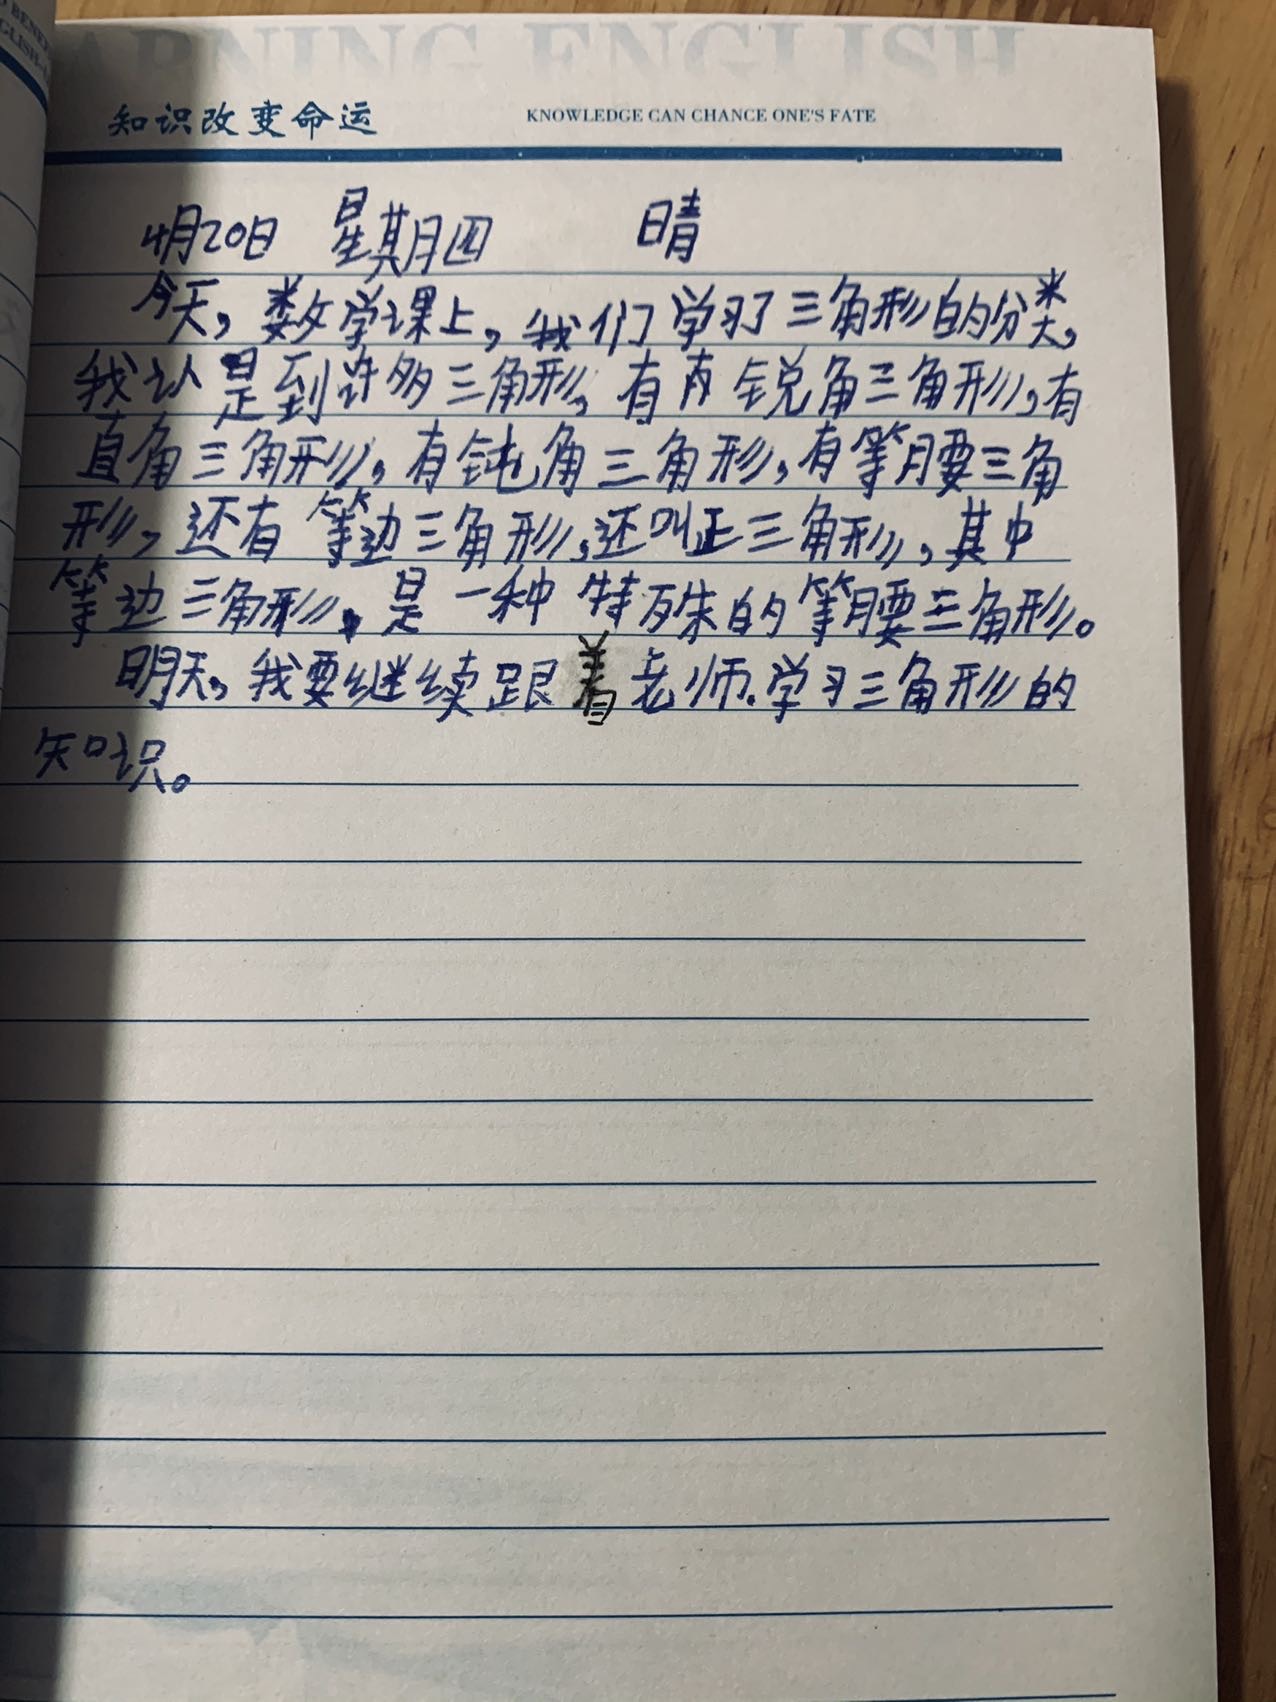 ARNING ENGLISH
知识改变命运
KNOWLEDGE CAN CHANCE ONE'S FATE
4月20日 星期四 晴
今天，数学课上，我们学习了三角形的分类，
我认是到许多三角形，有 锐角三角形，有
直角三角形，有钝角三角形，有等腰三角
形，还有等边三角形，还叫正三角形，其中
等边三角形，是一种特殊的等腰三角形。
明天，我要继续跟着老师.学习三角形的
知识。